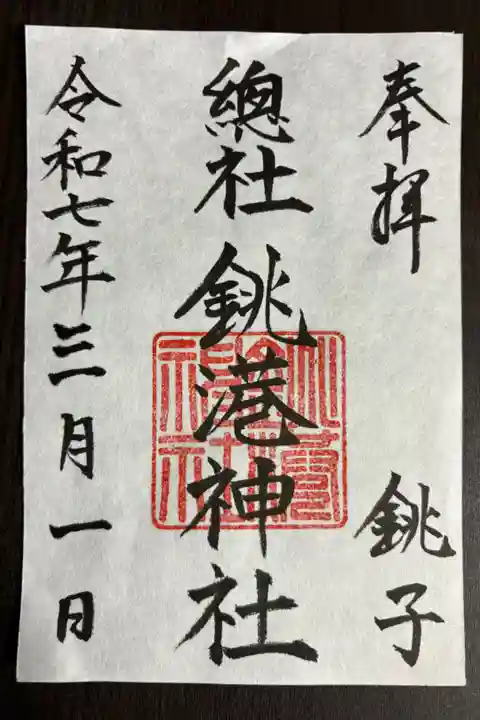 奉拝 銚子
總社 銚港神社
令和七年三月一日